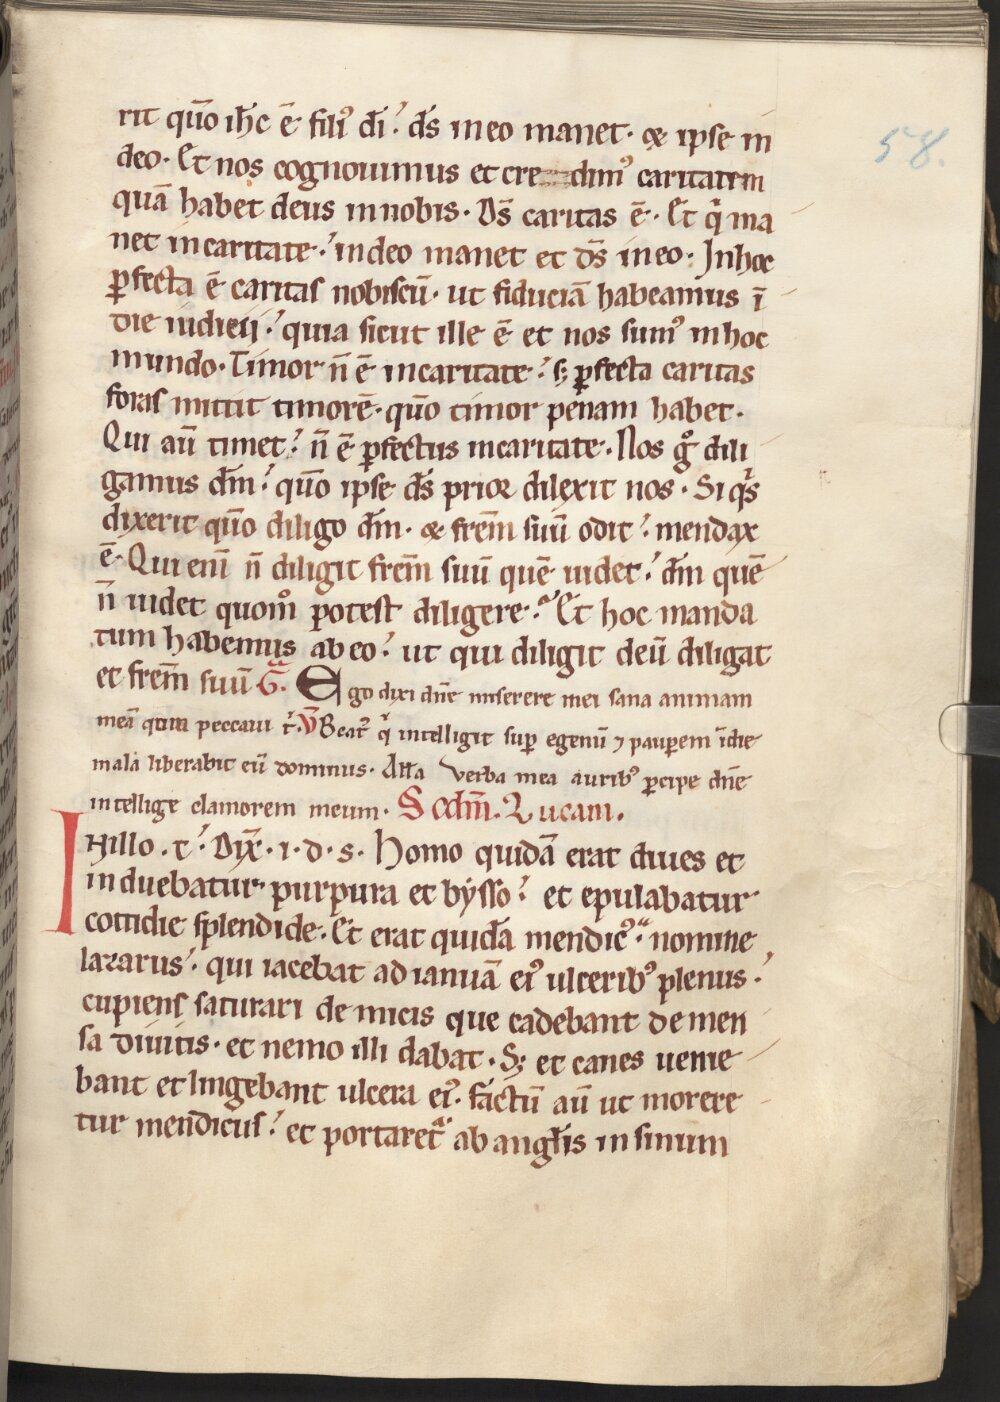 58.
rit qūo ih̄c ē filiꝰ dī. d̄s in eo manet. & ipse in
deo. Et nos cognouimus et cre dimꝰ caritatem
quā habet deus in nobis. D̄s caritas ē. Et q̄ ma
net in caritate. in deo manet et d̄s in eo. In hoc
ꝑfecta ē caritas nobiscū. ut fiduciā habeamus ī
die iudicij. quia sicut ille ē et nos sumꝰ in hoc
mundo. Timor n̄ ē in caritate. sꝫ ꝑfecta caritas
foras mittit timorē. qūo timor penam habet.
Qui aū timet. n̄ ē ꝑfectus in caritate. Nos gͦ dili
gamus dm̄. qūo ipse d̄s prior dilexit nos. Si qͥs
dixerit qūo diligo dm̄. & frēm suū odit. mendax
ē. Qui enī n̄ diligit frēm suū quē uidet. dm̄ quē
n̄ uidet quomͦ potest diligere. Et hoc manda
tum habemus ab eo. ut qui diligit deū diligat
et frēm suū. G̃. Ego dixi dn̄e miserere mei sana animam
meā qm̄ peccaui t̄. V̄ Beatꝰ qͥ intelligit sup̄ egenū ⁊ paup̄em ī die
mala liberabit eū dominus. All̄a Verba mea auribꝰ ꝑcipe dn̄e
intellige clamorem meum. Scdm̄. Lucam.
In illo. t̄. Dix̄. i. d. s. Homo quidā erat diues et
induebatur purpura et bysso. et epulabatur
cottidie splendide. Et erat quidā mendicꝰ. nomine
lazarus. qui iacebat ad ianuā eiꝰ ulceribꝰ plenus.
cupiens saturari de micis que cadebant de men
sa diuitis. et nemo illi dabat. Sꝫ et canes uenie
bant et lingebant ulcera eiꝰ. factū aū ut morere
tur mendicus. et portaret᷑ ab angl̄is in sinum